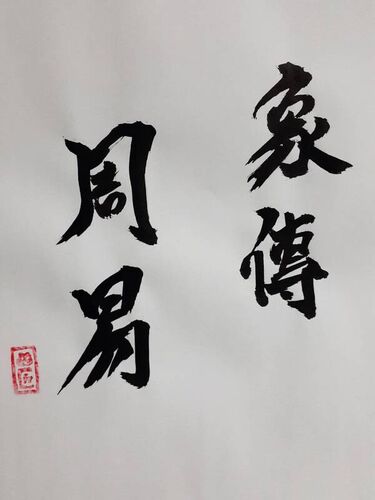 象傳
周易